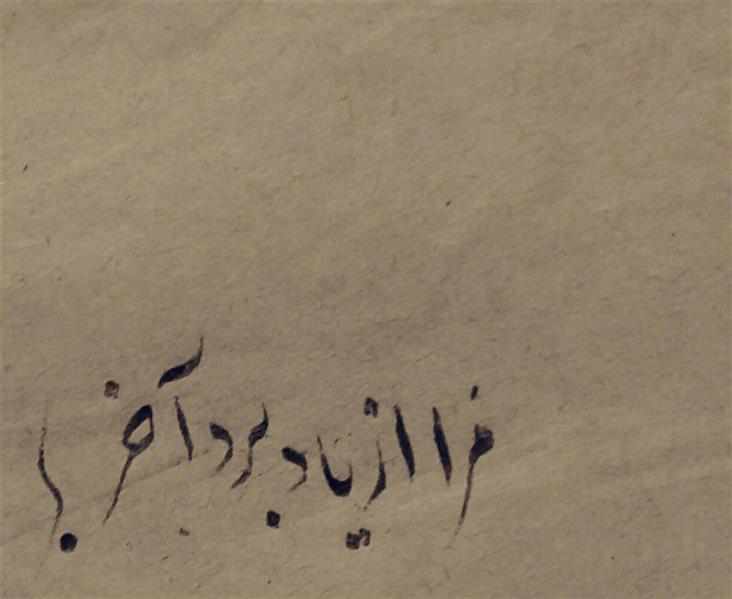 مرا از یاد برد آخر !